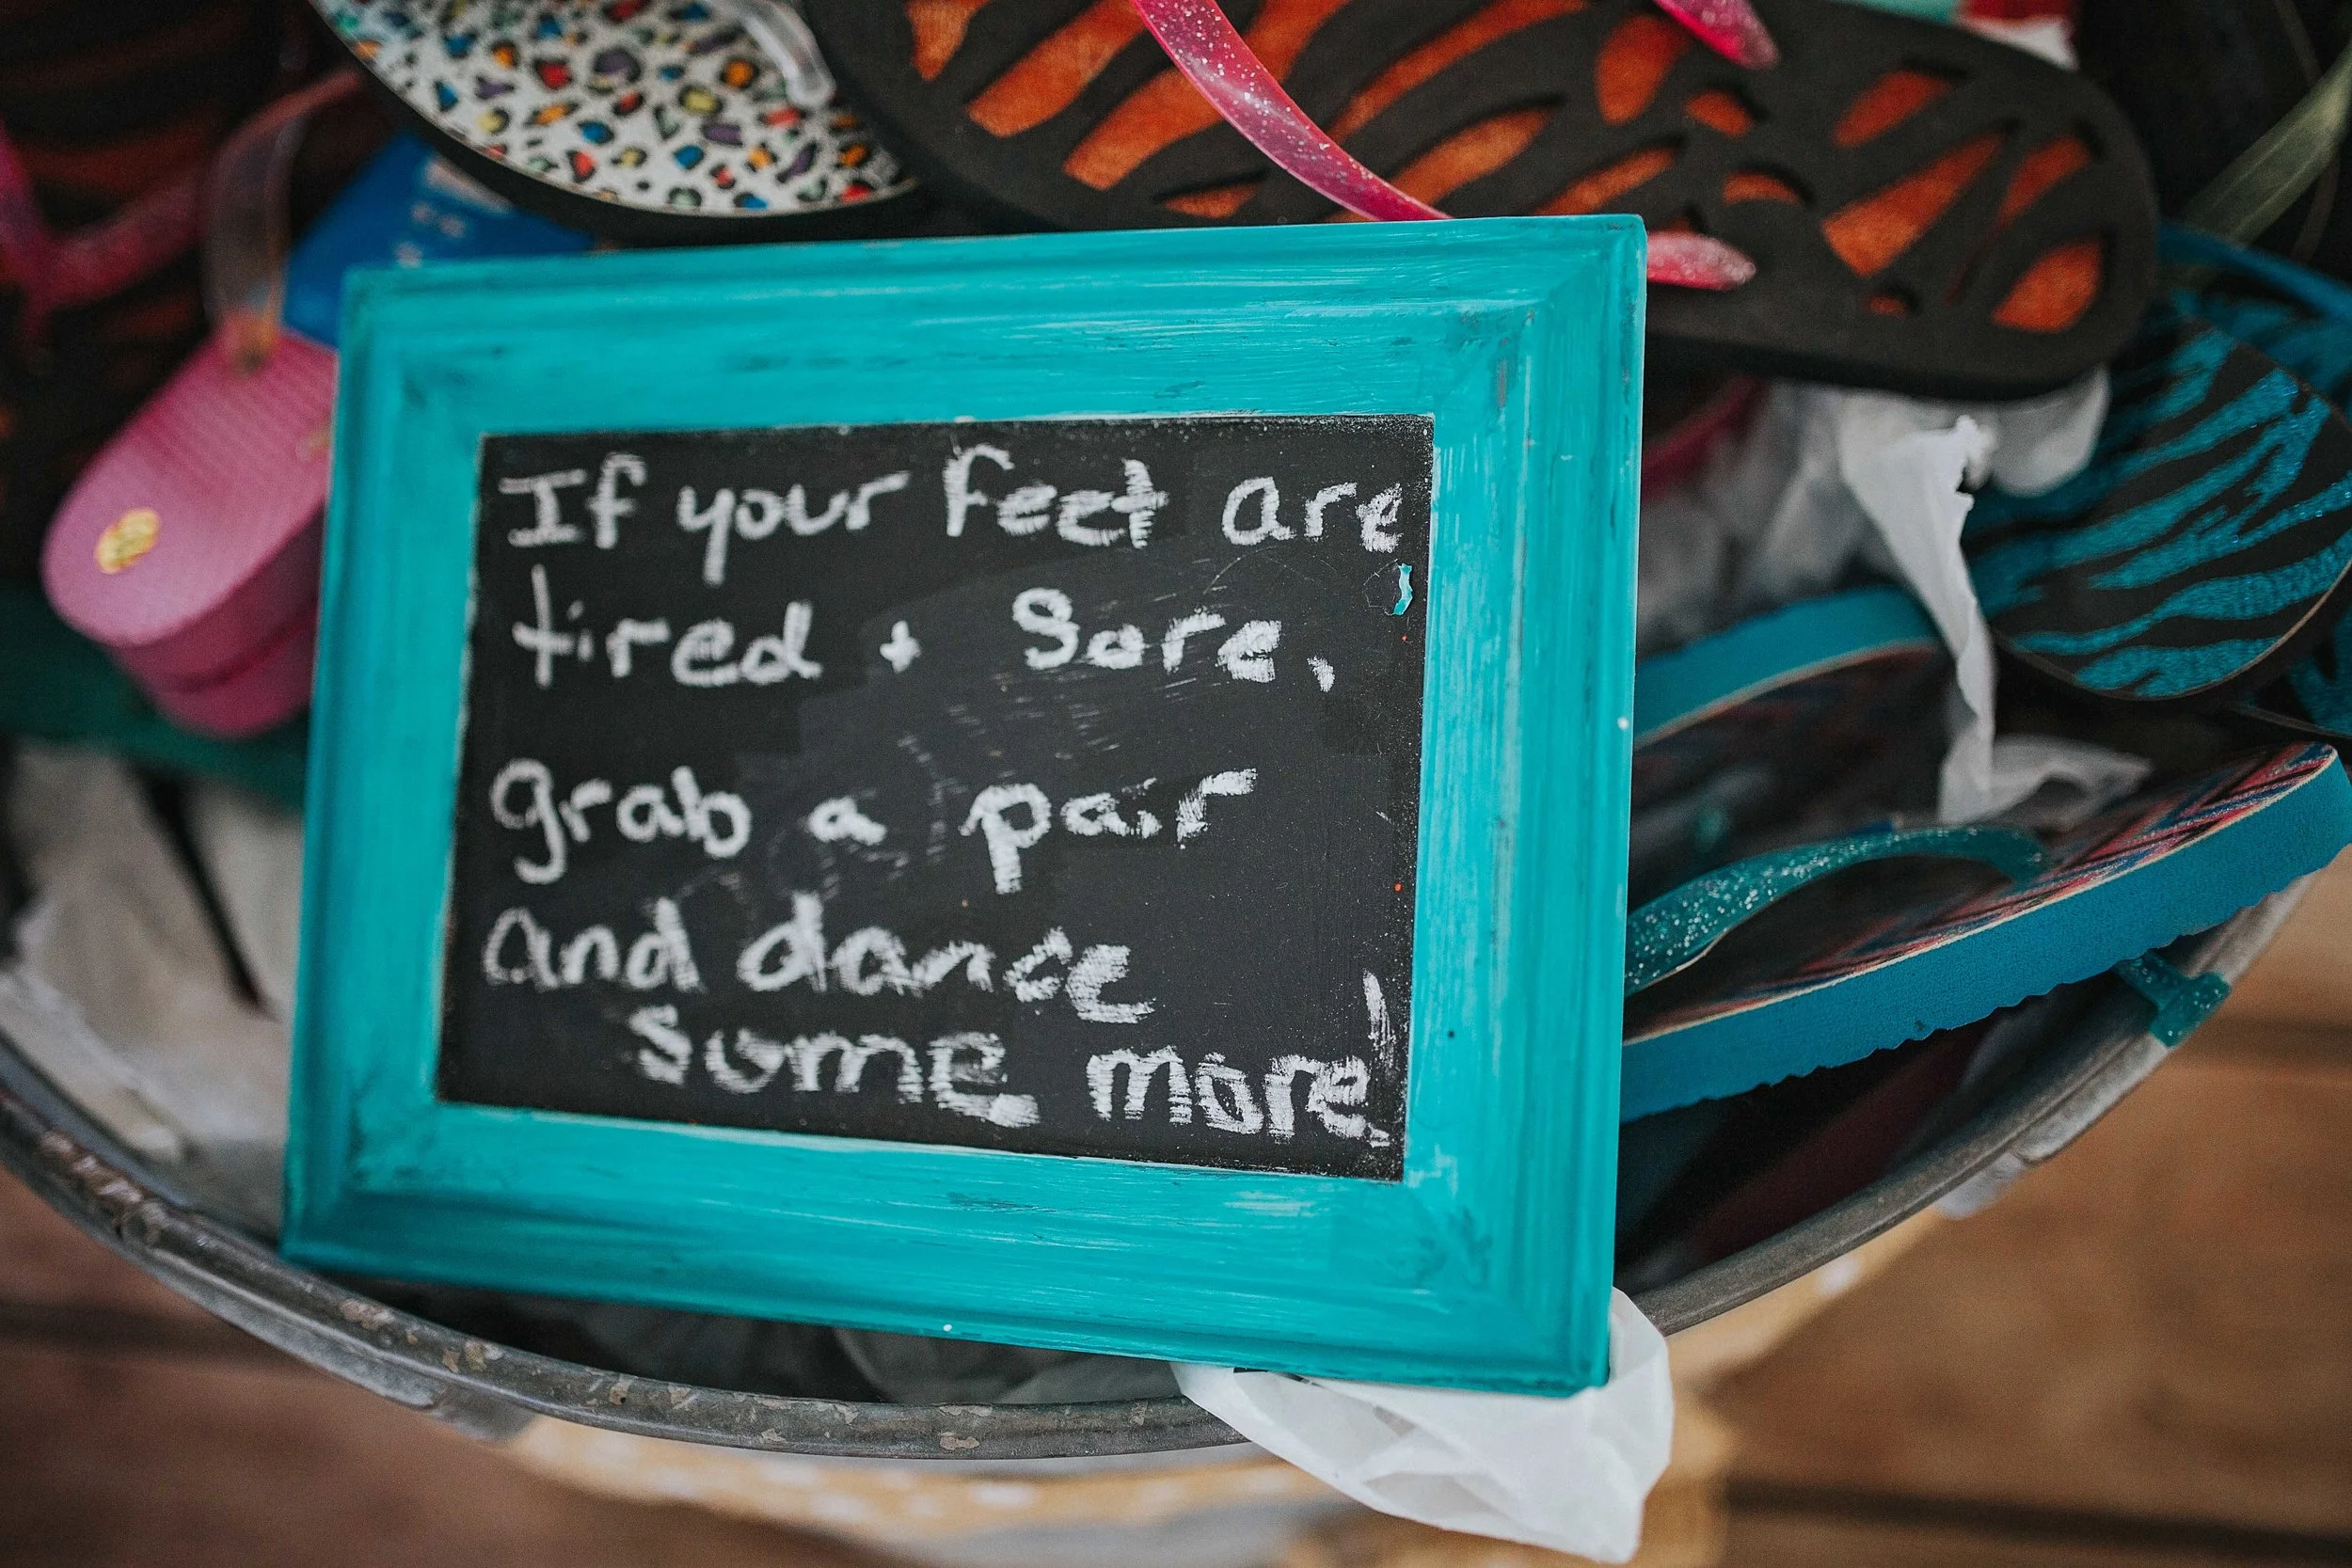 If your feet are
tired + sore,
grab a pair
and dance
some more!